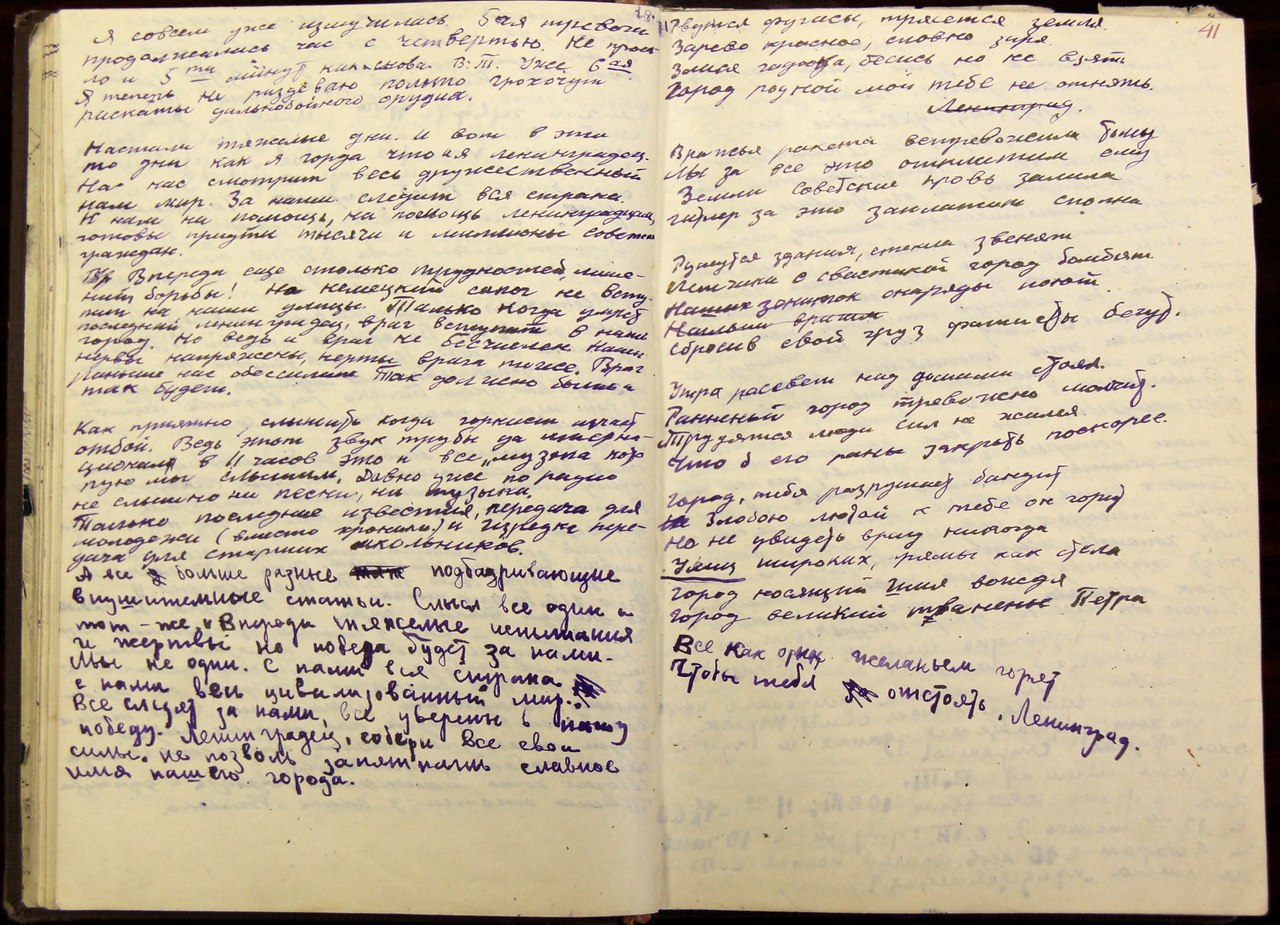 28.
Я совсем уже измучилась 5ая тревога
продолжалась час с четвертью. Не прош-
ло и 5ти минут как снова В.Т. Уже 6ая
Я теперь не раздеваю польто грохочут
раскаты дальнобойного орудия.
Настали тяжелые дни. И вот в эти
то дни как я горда что я ленинградец.
На нас смотрит весь дружественный
нам мир. За нами следит вся страна.
К нам на помощь, на помощь ленинградцам,
готовы придти тысячи и миллионы советск
граждан.
Впереди еще столько трудностей, лише-
ний борьбы! Но немецкий сапог не всту-
пит на наши улицы Только когда умрет
последний ленинградец, враг вступит в наш
город. Но ведь и враг не бесчислен. Наши
нервы напряжены, нервы врага тоже. Враг
раньше нас обессилит Так должно быть и
так будет.
Как приятно, слышить когда горнист играет
отбой. Ведь этот звук трубы да интерна-
ционал в 11 часов это и все „музыка кото
рую мы слышим. Давно уже по радио
не слышно ни песни, ни музыки.
Только последние известия, передача для
молодежи (вместо хроники) и изредка пере-
дача для старших школьников.
А все больше разные подбадривающие
внушительные статьи. Смысл все один и
тот-же „Впереди тяжелые испытания
и жертвы но победа будет за нами.
Мы не одни. С нами вся страна
с нами весь цивилизованный мир.
Все следят за нами, все уверены в нашу
победу. Ленинградец, собери все свои
силы. не позволь запятнать славное
имя нашего города.
41
Рвуться фугасы, трясется земля
Зарево красное, словно заря.
Злися гадюка, бесись но не взять
Город родной мой тебе не отнять.
Ленинград.
Вражья ракета встревожила тьму
Мы за все это отплатим ему
Земли советские кровь залила
гитлер за это заплатит сполна
Рушутся здания, стекла звенят
Летчики с свастикой город бомбят
Наших зениток снаряды поют.
Наглым врагам
Сбросив свой груз фашисты бегут.
Утра рассвет над домами стоял.
Раненный город тревожно молчит.
Трудятся люди сил не жилея
Что б его раны закрыть поскорее.
Город, тебя разрушает бандит
Злобою лютой к тебе он горит
Но не увидеть врагу никогда
Улиц широких, прямых как стрела
Город носящий имя вождя
Город великий творенье Петра
Все как один желаньем горят
Чтобы тебя отстоять, Ленинград.